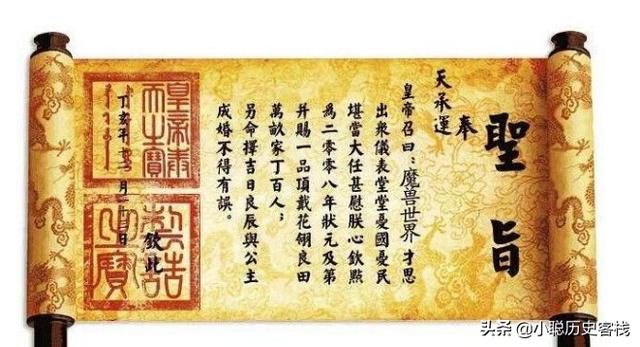 聖旨
奉
天承運
皇帝召曰：魔兽世界才思
出衆儀表堂堂憂國憂民
堪當大任甚慰朕心欽點
為二零零八年狀元及第
并賜一品頂戴花翎良田
萬畝家丁百人；
另命擇吉日良辰與公主
成婚不得有誤。
欽此
丁亥年 月二十三日
头条 @小聪历史客栈